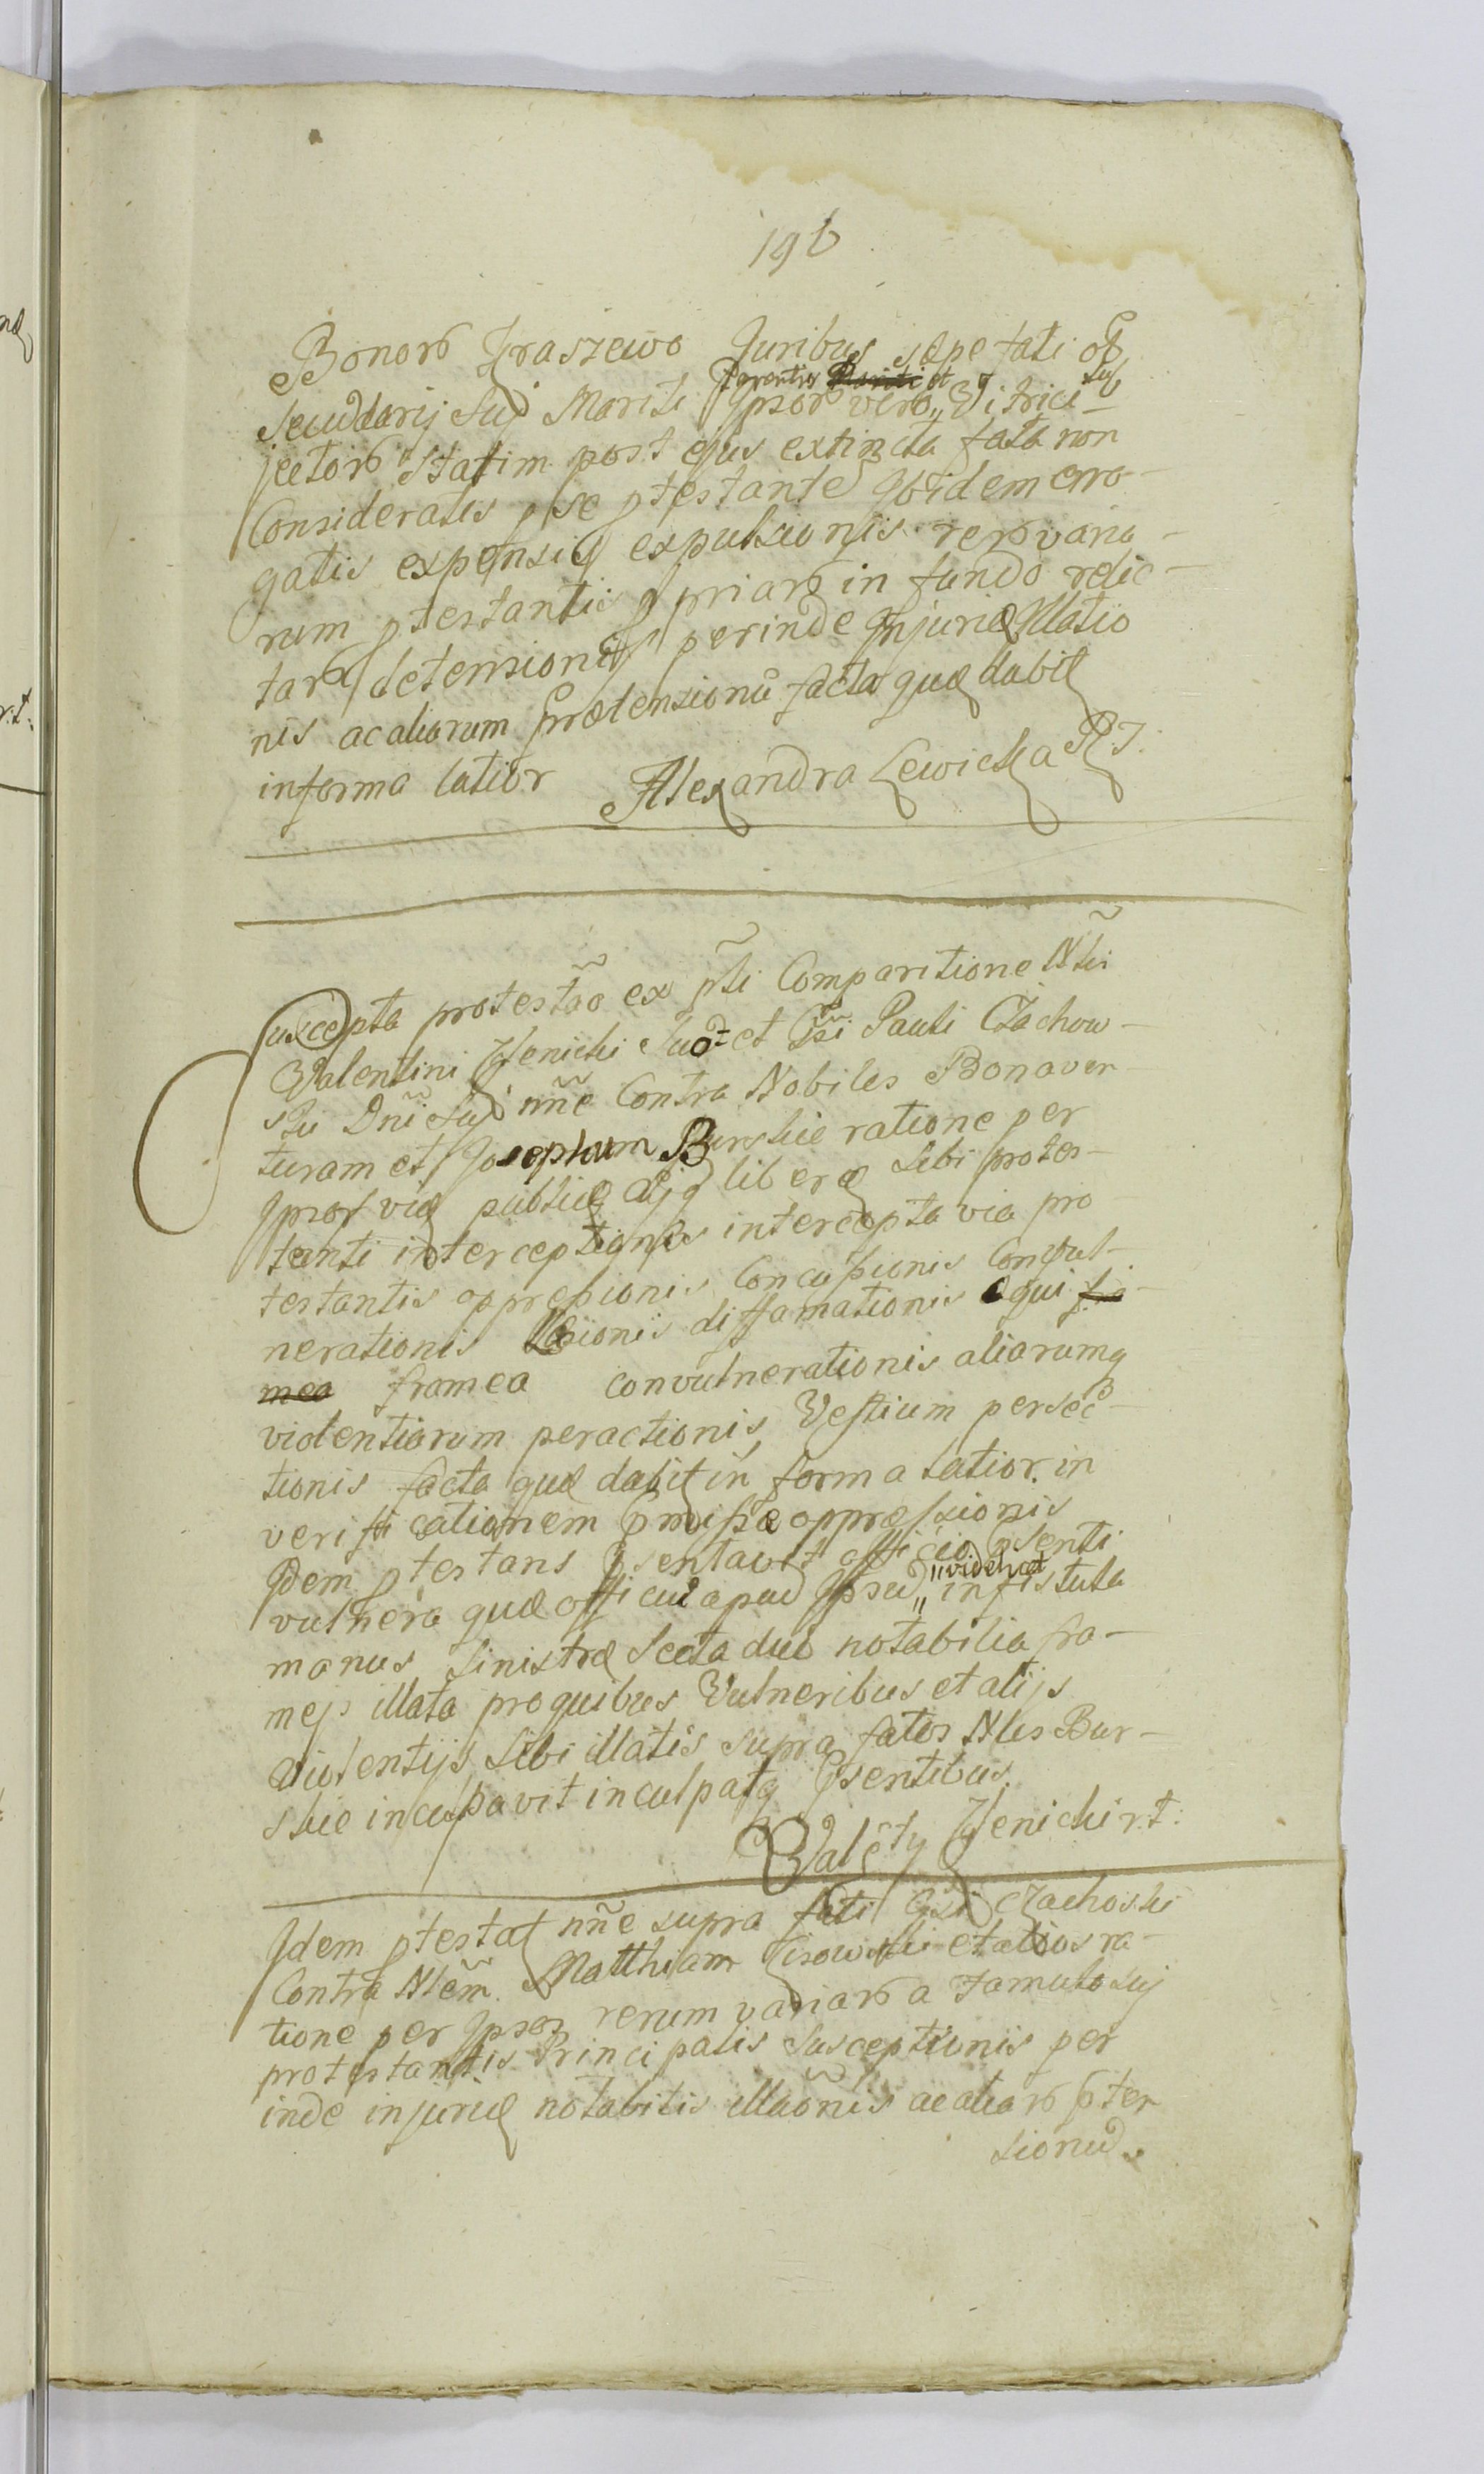 196
Bonorũ Kraszewo Juribus sæpe fati ob
Parentis Mariti et sub
secudarij sui Mariti Ipsorũ vero Vitrici
jectorũ statim post ejus extincta fata non
Consideratis p se ptestante Ibidem erro-
gatis expensis expulsionis rerũ varia-
rum ptestantis ppriarũ in fundo relic-
tarũ detensionis perinde Injuriæ Illatio
nis ac aliorum Prætensionũ facta quæ dabit
in forma latior Alexandra Lewicka
Suscepta protestão ex pñti Comparitione Nblis
Valentini Jenicki suo et Gsi Pauli Czachow-
ski Dni sui nñe Contra Nobiles Bonaven
turam et Josephum Burskie ratione per
Ipsos viæ publicæ ejq liberæ sibi protes-
tanti interceptionis intercepta via pro
testantis oppressionis Concussionis Convul-
nerationis Læsionis diffamationis equi fra
mea framea convulnerationis aliarumq
violentiarum peractionis, Vestium persec-
tionis facta quæ dabit in forma latior. in
verificationem præmissæ oppræssionis
Idem ptestans Psentavit officio Psenti
vulnera quæ officiũ apud Ipsũ "videlicet in fistula
manus sinistræ secta duo notabilia fra-
meis illata pro quibus Vulneribus et alijs
violentijs sibi illatis supra fatos Nbles Bur-
skie inculpavit inculpatq Psentibus.
Valęty Jenicki r.t.
Idem ptestat nñe supra fati Gsi Czachoski
Contra Nblem Matthiam Lisowski et alios ra-
tione per Ipsos rerum variarũ a Famulo sui
protestantis Principalis susceptionis per
inde injuriæ notabilis illaõnis ac aliarũ Pten
sionũ.